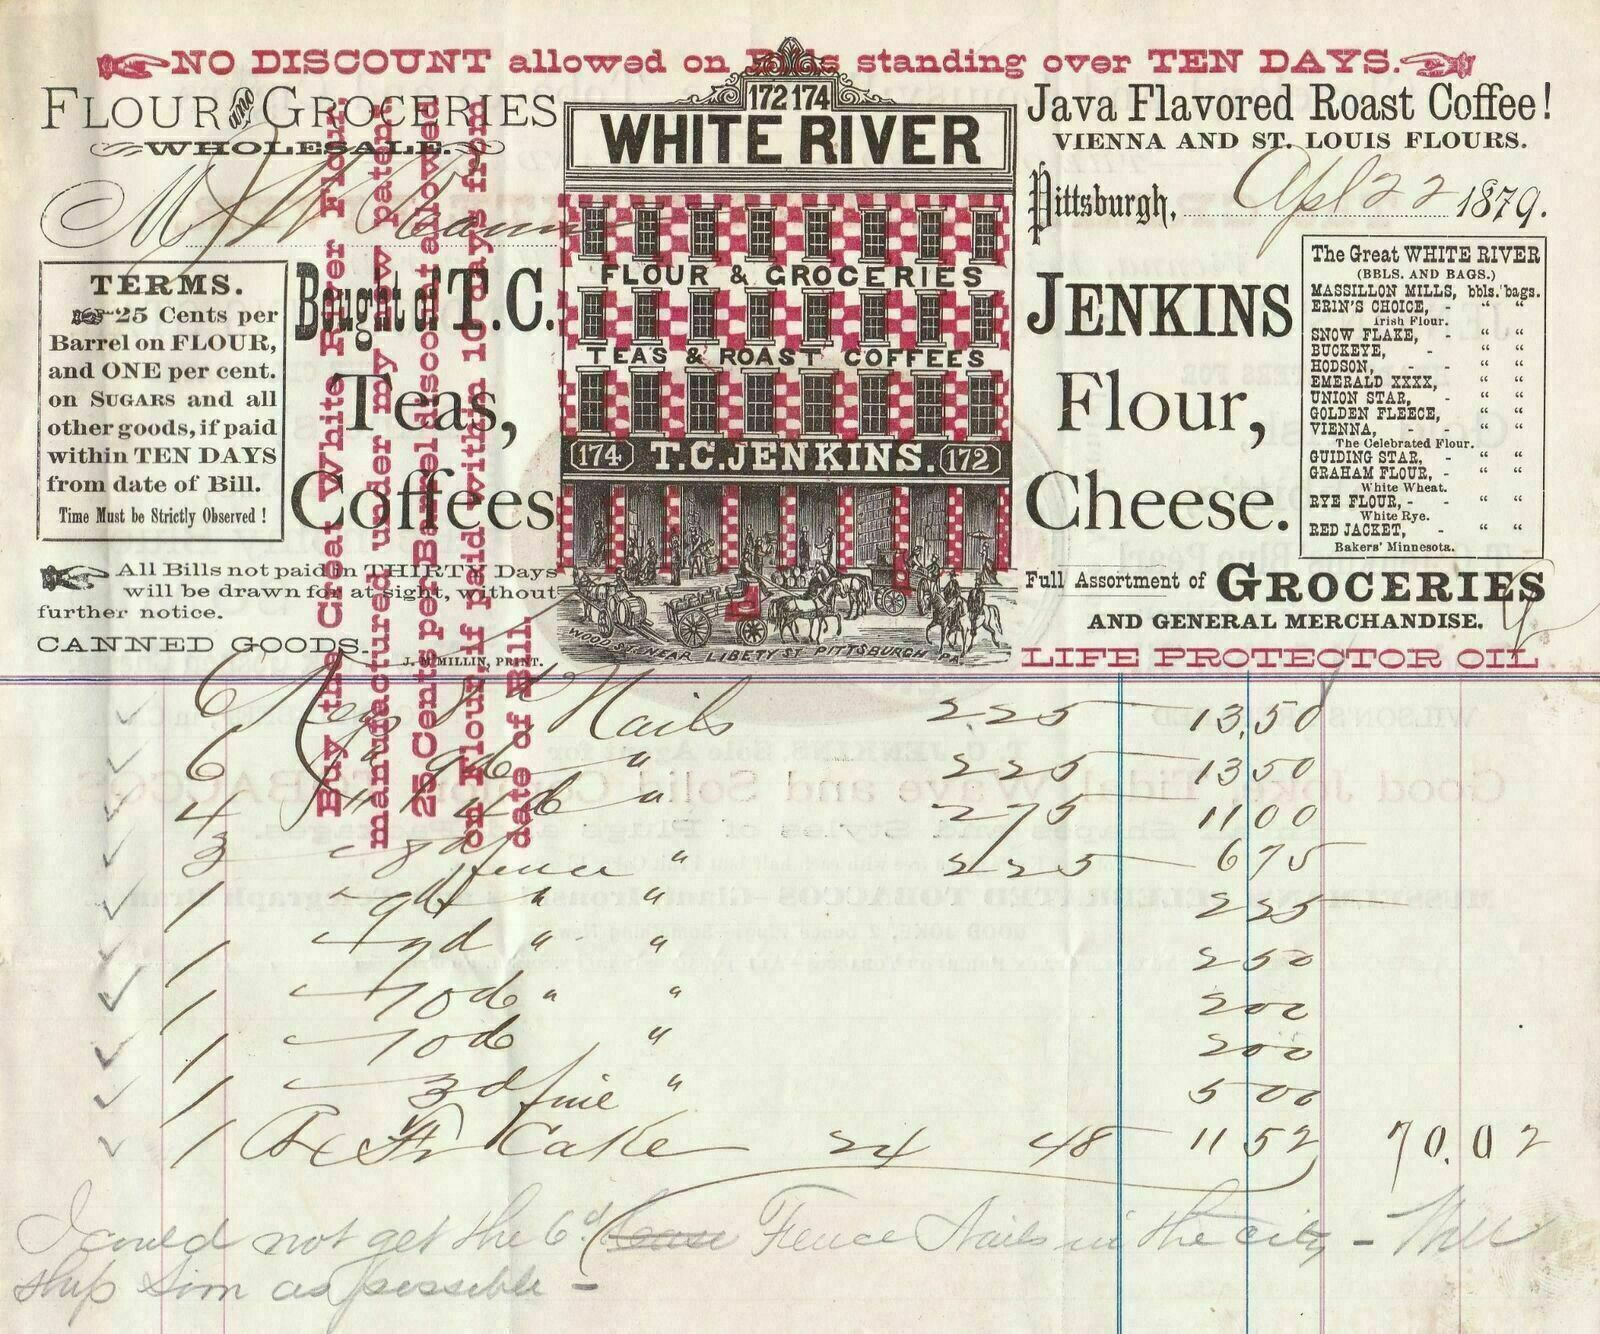 NO DISCOUNT allowed on Bills standing over TEN DAYS.
FLOUR AND GROCERIES
WHOLESALE.
172 174
WHITE RIVER
FLOUR & GROCERIES
TEAS & ROAST COFFEES
174 T.C. JENKINS. 172
WOOD ST. NEAR LIBETY ST PITTSBURGH PA.
Java Flavored Roast Coffee!
VIENNA AND ST. LOUIS FLOURS.
Pittsburgh, Apl 22 1879.
M
Bought of T. C. JENKINS
Teas, Flour,
Coffees Cheese.
TERMS.
25 Cents per
Barrel on FLOUR,
and ONE per cent.
on SUGARS and all
other goods, if paid
within TEN DAYS
from date of Bill.
Time Must be Strictly Observed!
All Bills not paid in THIRTY Days
will be drawn for at sight, without
further notice.
CANNED GOODS.
J. McMILLIN, PRINT.
The Great WHITE RIVER
(BBLS. AND BAGS.)
MASSILLON MILLS, bbls. bags.
ERIN'S CHOICE, - " "
Irish Flour.
SNOW FLAKE, - " "
BUCKEYE, - " "
HODSON, - - " "
EMERALD XXXX, " "
UNION STAR, - " "
GOLDEN FLEECE, " "
VIENNA, - - " "
The Celebrated Flour.
GUIDING STAR, - " "
GRAHAM FLOUR, - " "
White Wheat.
RYE FLOUR, - - " "
White Rye.
RED JACKET, - " "
Bakers' Minnesota.
Full Assortment of GROCERIES
AND GENERAL MERCHANDISE.
LIFE PROTECTOR OIL
Buy the Great White River Flour,
manufactured under my new patent.
25 Cents per Barrel discount allowed
on Flour, if paid within 10 days from
date of Bill.
6 Kegs 8d Nails 225 13,50
6 " 9d " 225 1350
4 " 4d " 275 1100
3 8d fence " 225 675
1 9d " " 225
1 7d " " 250
1 10d " " 200
1 10d " 200
1 3d fine " 500
1 Bx Cake 24 48 1152 70.02
I could not get the 6d Fence Nails in the city - Will
ship soon as possible -